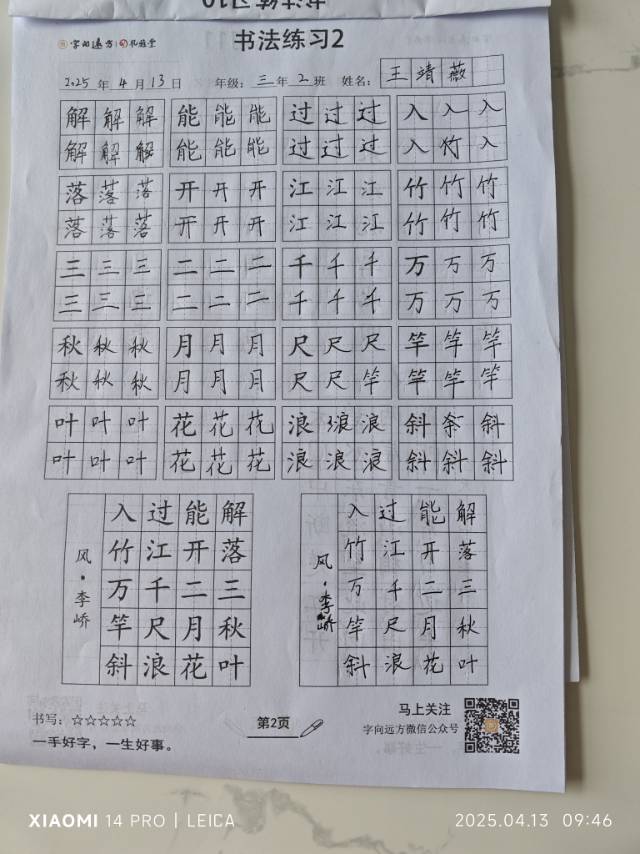 书法练习10
字向远方 礼雅堂
书法练习2
2025 年 4 月 13 日 年级：三 年 2 班 姓名：王靖薇
解解解 能能能 过过过 入入入
解解解 能能能 过过过 入竹入
落落落 开开开 江江江 竹竹竹
落落落 开开开 江江江 竹竹竹
三三三 二二二 千千千 万万万
三三三 二二二 千千千 万万万
秋秋秋 月月月 尺尺尺 竿竿竿
秋秋秋 月月月 尺尺竿 竿竿竿
叶叶叶 花花花 浪浪浪 斜 斜
叶叶叶 花花花 浪浪浪 斜斜斜
入过能解
竹江开落
万千二三
竿尺月秋
斜浪花叶
风·李峤
入过能解
竹江开落
万千二三
竿尺月秋
斜浪花叶
风·李峤
书写：☆☆☆☆☆
一手好字，一生好事。
第2页
马上关注
字向远方微信公众号
XIAOMI 14 PRO | LEICA
2025.04.13 09:46